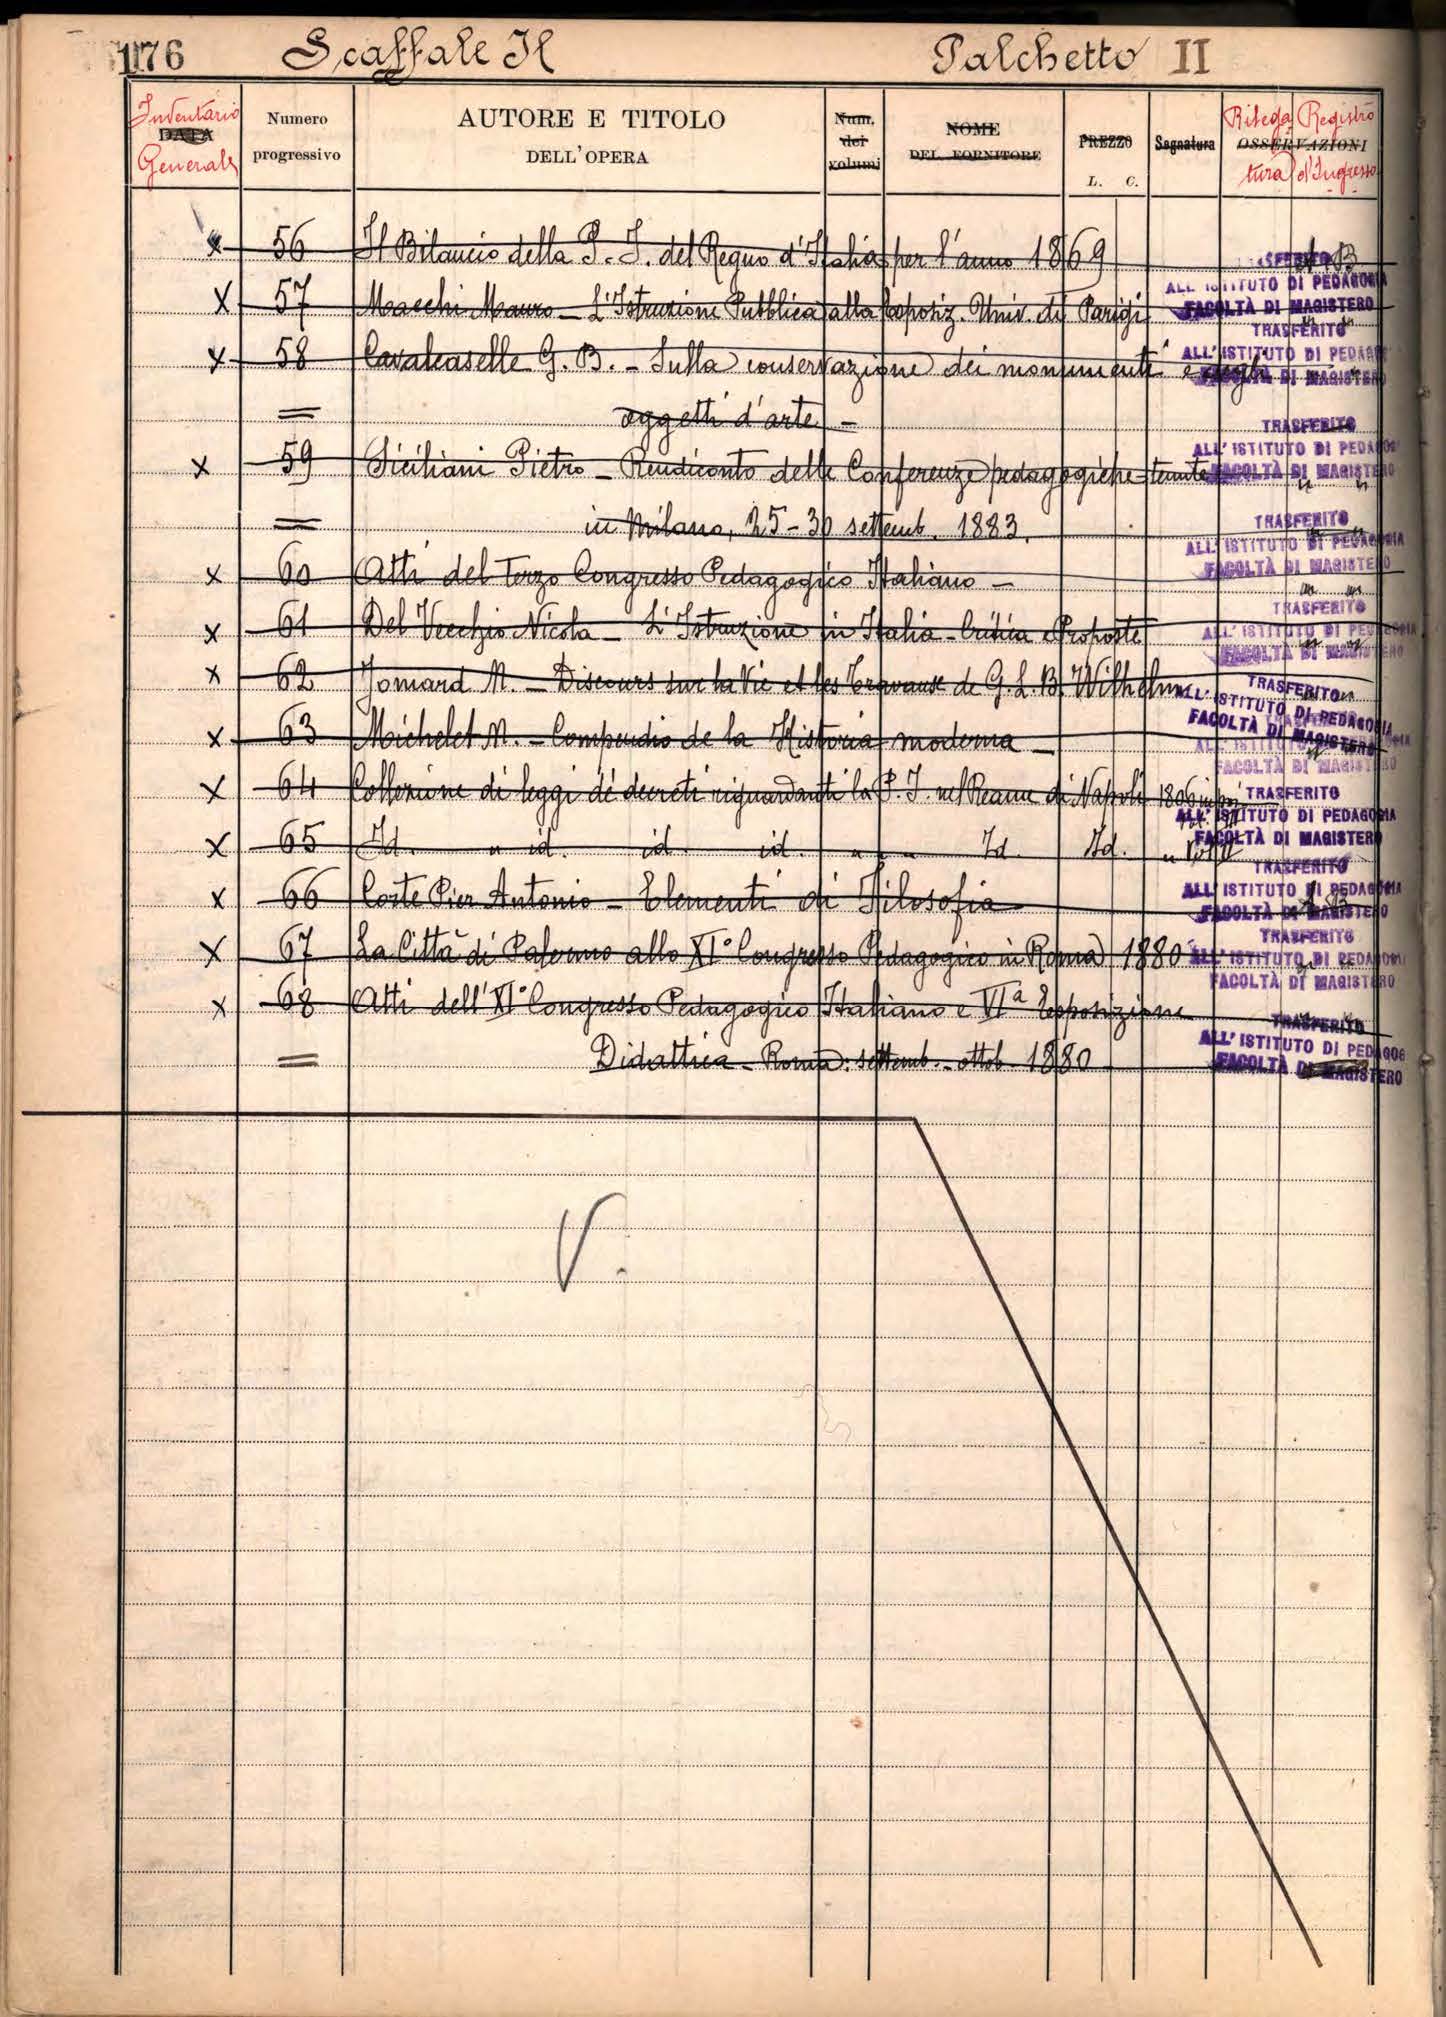 176 Scaffale Il Palchetto II
Inventario Generale DATA
Numero progressivo
AUTORE E TITOLO
DELL'OPERA
Num. dei volumi
NOME
DEL FORNITORE
PREZZO
L. C.
Segnatura
Rilegatura Registro d'Ingresso
OSSERVAZIONI
x 56 Il Bilancio della P. I. del Regno d'Italia per l'anno 1869 B
TRASFERITO
ALL'ISTITUTO DI PEDAGOGIA
FACOLTÀ DI MAGISTERO
x 57 Macchi Mauro — L'Istruzione Pubblica alla Esposiz. Univ. di Parigi " "
TRASFERITO
ALL'ISTITUTO DI PEDAGOGIA
FACOLTÀ DI MAGISTERO
x 58 Cavalcaselle G. B. — Sulla conservazione dei monumenti e degli
= oggetti d'arte —
TRASFERITO
ALL'ISTITUTO DI PEDAGOGIA
FACOLTÀ DI MAGISTERO
x 59 Siciliani Pietro — Rendiconto delle Conferenze pedagogiche tenute " "
= in Milano, 25-30 settemb. 1883.
TRASFERITO
ALL'ISTITUTO DI PEDAGOGIA
FACOLTÀ DI MAGISTERO
x 60 Atti del Terzo Congresso Pedagogico Italiano — " "
TRASFERITO
ALL'ISTITUTO DI PEDAGOGIA
FACOLTÀ DI MAGISTERO
x 61 Del Vecchio Nicola — L'Istruzione in Italia - Critica e Proposte " "
x 62 Jomard M. — Discours sur la Vie et les Travaux de G. L. B. Wilhelm " "
TRASFERITO
ALL'ISTITUTO DI PEDAGOGIA
FACOLTÀ DI MAGISTERO
x 63 Michelet M. — Compendio de la Historia moderna —
ALL'ISTITUTO DI PEDAGOGIA
FACOLTÀ DI MAGISTERO
x 64 Collezione di leggi de' decreti riguardanti la P. I. nel Reame di Napoli 1806 in poi
TRASFERITO
ALL'ISTITUTO DI PEDAGOGIA
FACOLTÀ DI MAGISTERO
x 65 Id. " id. id. id. " " Id. Id. " Vol. II
TRASFERITO
ALL'ISTITUTO DI PEDAGOGIA
FACOLTÀ DI MAGISTERO
x 66 Corte Pier Antonio — Elementi di Filosofia B
x 67 La Città di Palermo allo XI° Congresso Pedagogico in Roma 1880
TRASFERITO
ALL'ISTITUTO DI PEDAGOGIA
FACOLTÀ DI MAGISTERO
x 68 Atti dell'XI° Congresso Pedagogico Italiano e VIa Esposizione
= Didattica — Roma: settemb. - ottob. 1880
TRASFERITO
ALL'ISTITUTO DI PEDAGOGIA
FACOLTÀ DI MAGISTERO
V.